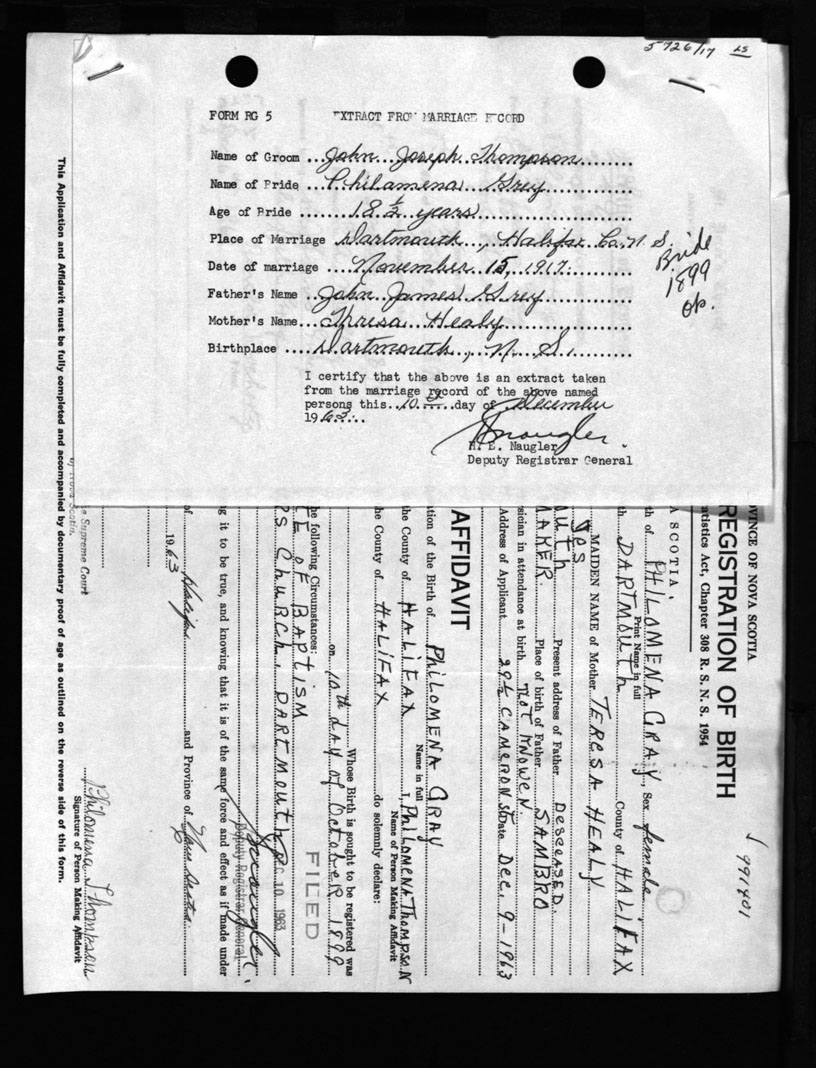 5726/17 LS
FORM RG 5 EXTRACT FROM MARRIAGE RECORD
Name of Groom ...John Joseph Thompson
Name of Bride ...Philamena Grey
Age of Bride .......18 ½ years
Place of Marriage Dartmouth, Halifax Co. N. S.
Date of marriage ....November 15, 1917.
Father's Name ...John James Grey
Mother's Name...Thresa Healy
Birthplace ....Dartmouth, N. S.
Bride
1899
I certify that the above is an extract taken
from the marriage record of the above named
persons this..10.....day of December
1963...
Naugler
H. E. Naugler
Deputy Registrar General
991401
VINCE OF NOVA SCOTIA
REGISTRATION OF BIRTH
atistics Act, Chapter 308 R. S. N. S. 1954
A SCOTIA,
th of PHILOMENA GRAY, Sex female
Print Name in full
th DARTMOUTH County of HALIFAX
MAIDEN NAME of Mother TERESA HEALY
outh Present address of Father DESCEASED.
AKER. Place of birth of Father SAMBRO
sician in attendance at birth not KNOWEN.
Address of Applicant 29½ CAMERON St Date Dec. 9-1963
AFFIDAVIT
ation of the Birth of PHILOMENA GRAY
Name in full
the County of HALIFAX I, PHILOMENA THOMPSON
Name of Person Making Affidavit
he County of HALIFAX do solemnly declare:
Whose Birth is sought to be registered was
on 10th DAY of OctobeR 1899
he following Circumstances:
FILED
OF BAPTISM
CHURCH, DARTMOUTH
DEC 10 1963
Deputy Registrar General
g it to be true, and knowing that it is of the same force and effect as if made under
of Halifax and Province of Nova Scotia
1963
e Supreme Court
of Nova Scotia.
Philomena Thompson
Signature of Person Making Affidavit
This Application and Affidavit must be fully completed and accompanied by documentary proof of age as outlined on the reverse side of this form.